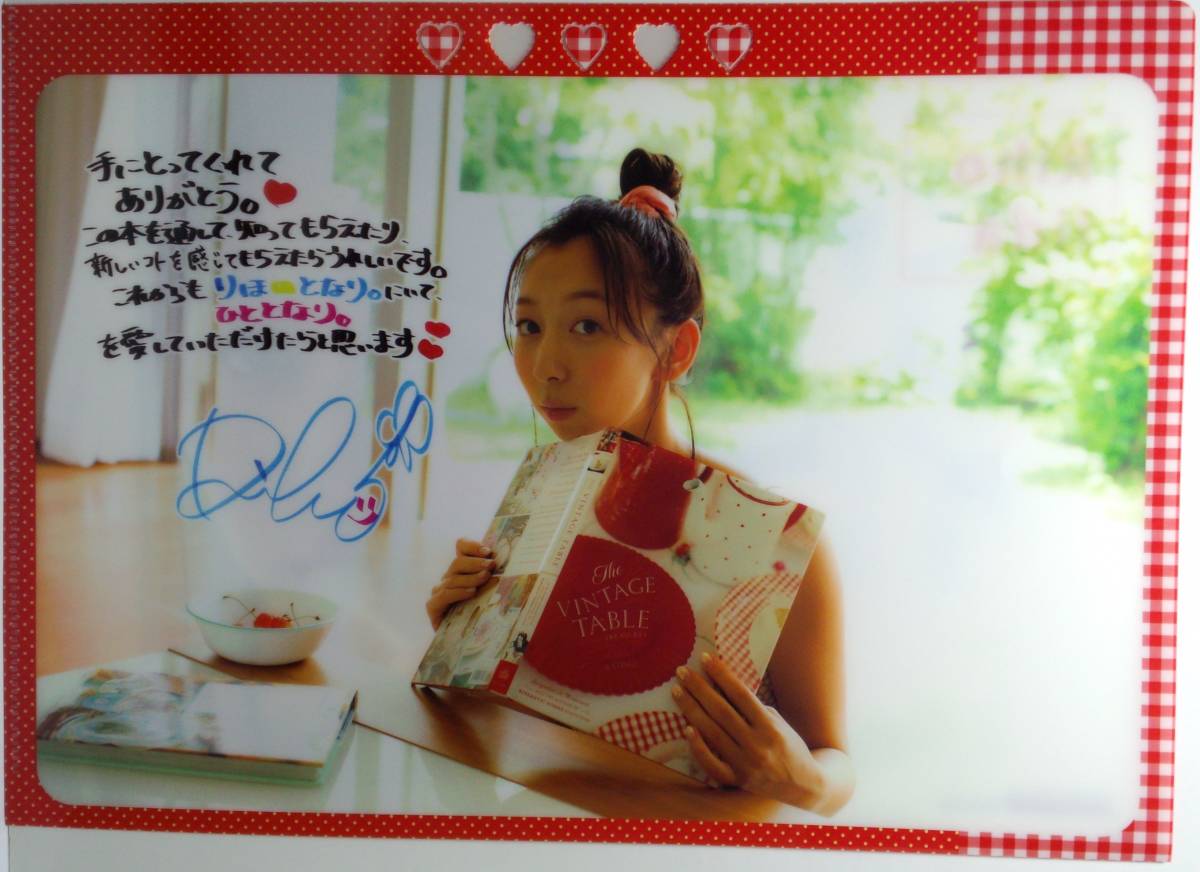 手にとってくれて
ありがとう。
この本を通して、知ってもらえたり、
新しいコトを感じてもらえたらうれしいです。
これからも りほーとなり。にいて、
ひととなり。
を愛していただけたらと思います
Riho
VINTAGE TABLE
The
VINTAGE
TABLE